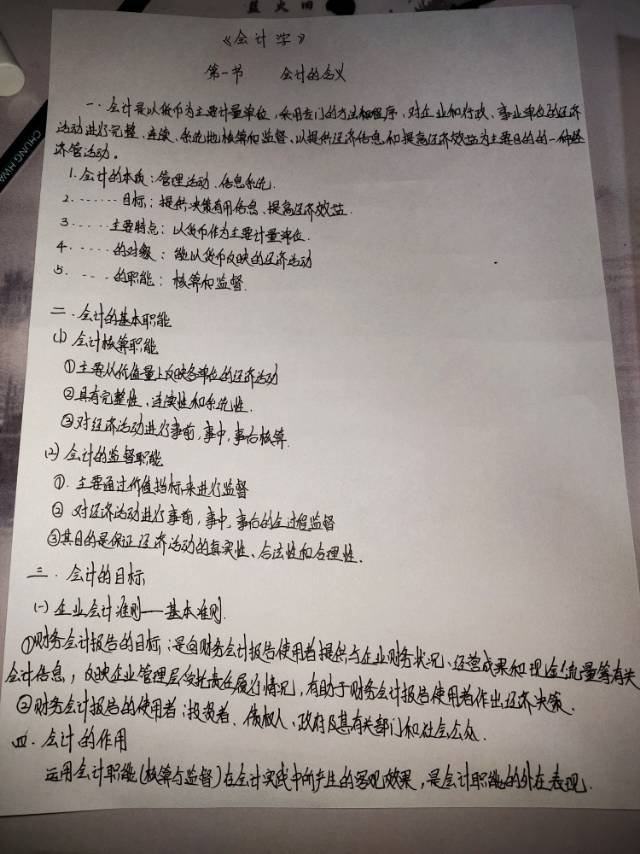 《会计学》
第一节 会计的含义
一.会计是以货币为主要计量单位,采用专门的方法和程序,对企业和行政、事业单位的经济
活动进行完整、连续、系统地核算和监督,以提供经济信息和提高经济效益为主要目的的一种经
济管活动。
1.会计的本质:管理活动、信息系统.
2.……目标:提供决策有用信息、提高经济效益.
3.…..主要特点:以货币作为主要计量单位.
4.…..的对象:能以货币反映的经济活动
5.….的职能:核算和监督.
二.会计的基本职能
(1)会计核算职能
①主要从价值量上反映各单位的经济活动
②具有完整性、连续性和系统性.
③对经济活动进行事前,事中,事后核算.
(2)会计的监督职能
①.主要通过价值指标来进行监督
②对经济活动进行事前,事中,事后的全过程监督
③其目的是保证经济活动的真实性、合法性和合理性.
三.会计的目标
(一)企业会计准则——基本准则.
①财务会计报告的目标:是向财务会计报告使用者提供与企业财务状况、经营成果和现金流量等有关
会计信息,反映企业管理层受托责任履行情况,有助于财务会计报告使用者作出经济决策.
②财务会计报告的使用者:投资者、债权人、政府及其有关部门和社会公众.
四.会计的作用
运用会计职能(核算与监督)在会计实践中所产生的客观效果,是会计职能的外在表现.
CHUNG HWA